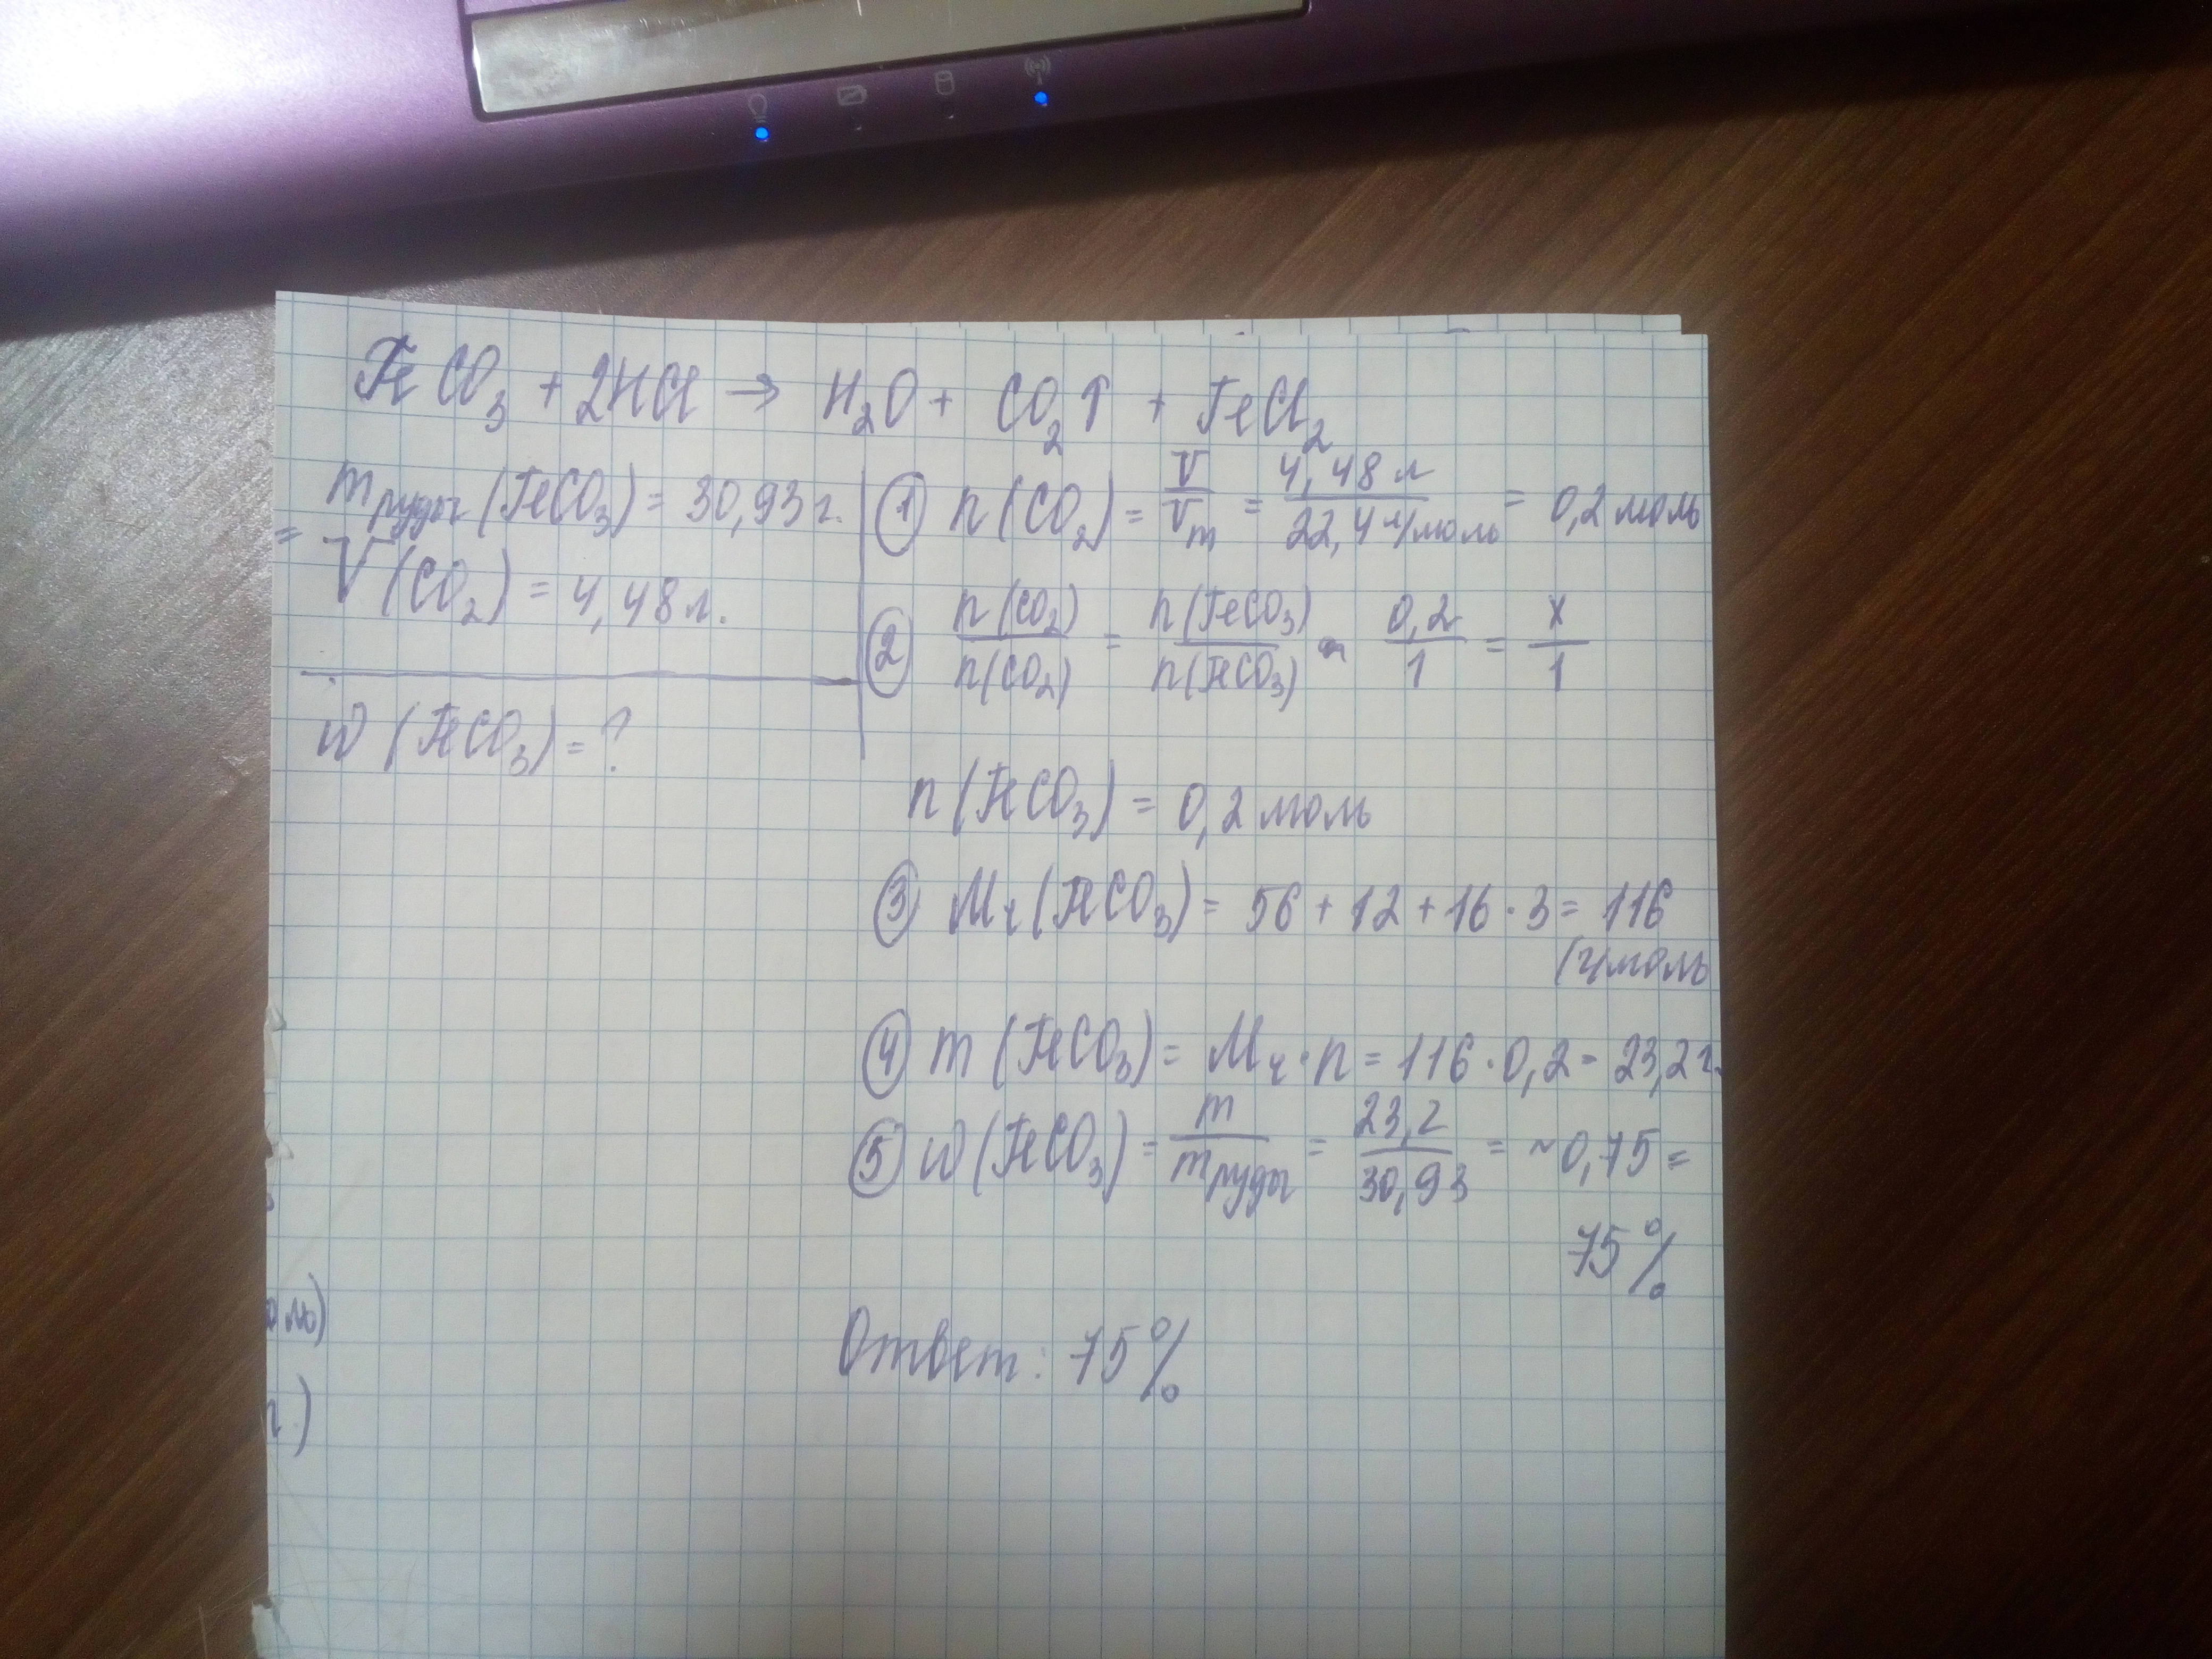 FeCO₃ + 2HCl → H₂O + CO₂↑ + FeCl₂
m руды (FeCO₃) = 30,93 г.
V (CO₂) = 4,48 л.
w (FeCO₃) = ?
① n (CO₂) = V/Vm = 4,48 л / 22,4 л/моль = 0,2 моль
② n(CO₂)/n(CO₂) = n(FeCO₃)/n(FeCO₃) 0,2/1 = x/1
n (FeCO₃) = 0,2 моль
③ Mr (FeCO₃) = 56 + 12 + 16 · 3 = 116
(г/моль
④ m (FeCO₃) = Mr · n = 116 · 0,2 = 23,2 г.
⑤ w (FeCO₃) = m / m руды = 23,2 / 30,93 = ~0,75 =
75%
Ответ: 75%
=
оль)
г.)